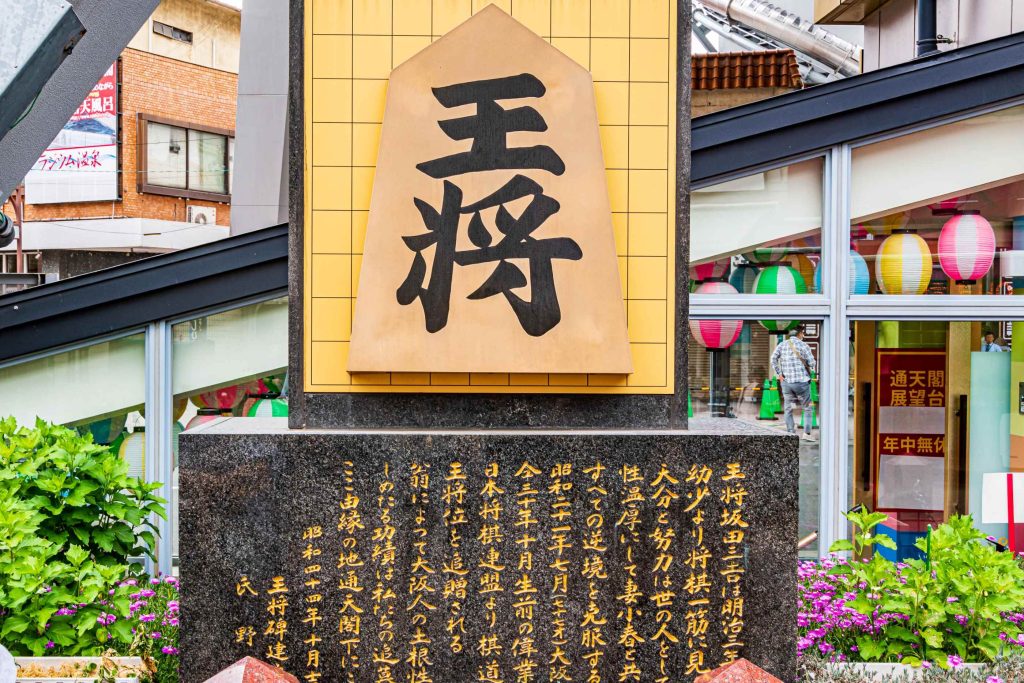 王将
王将坂田三吉は明治三年
幼少より将棋一筋に見
天分と努力は世の人とし
性温厚にして妻小春と共
すべての逆境を克服する
昭和二十一年七月七十七才大阪
仝三十年十月生前の偉業
日本将棋連盟より棋道
王将位を追贈される
翁によって大阪人の土根性
しめたる功績は私たちの追慕
ここ由縁の地通天閣下に
昭和四十四年十月吉
王将碑建
氏 野
ながら
天風呂
ラジウム温泉
通天閣
展望台
年中無休